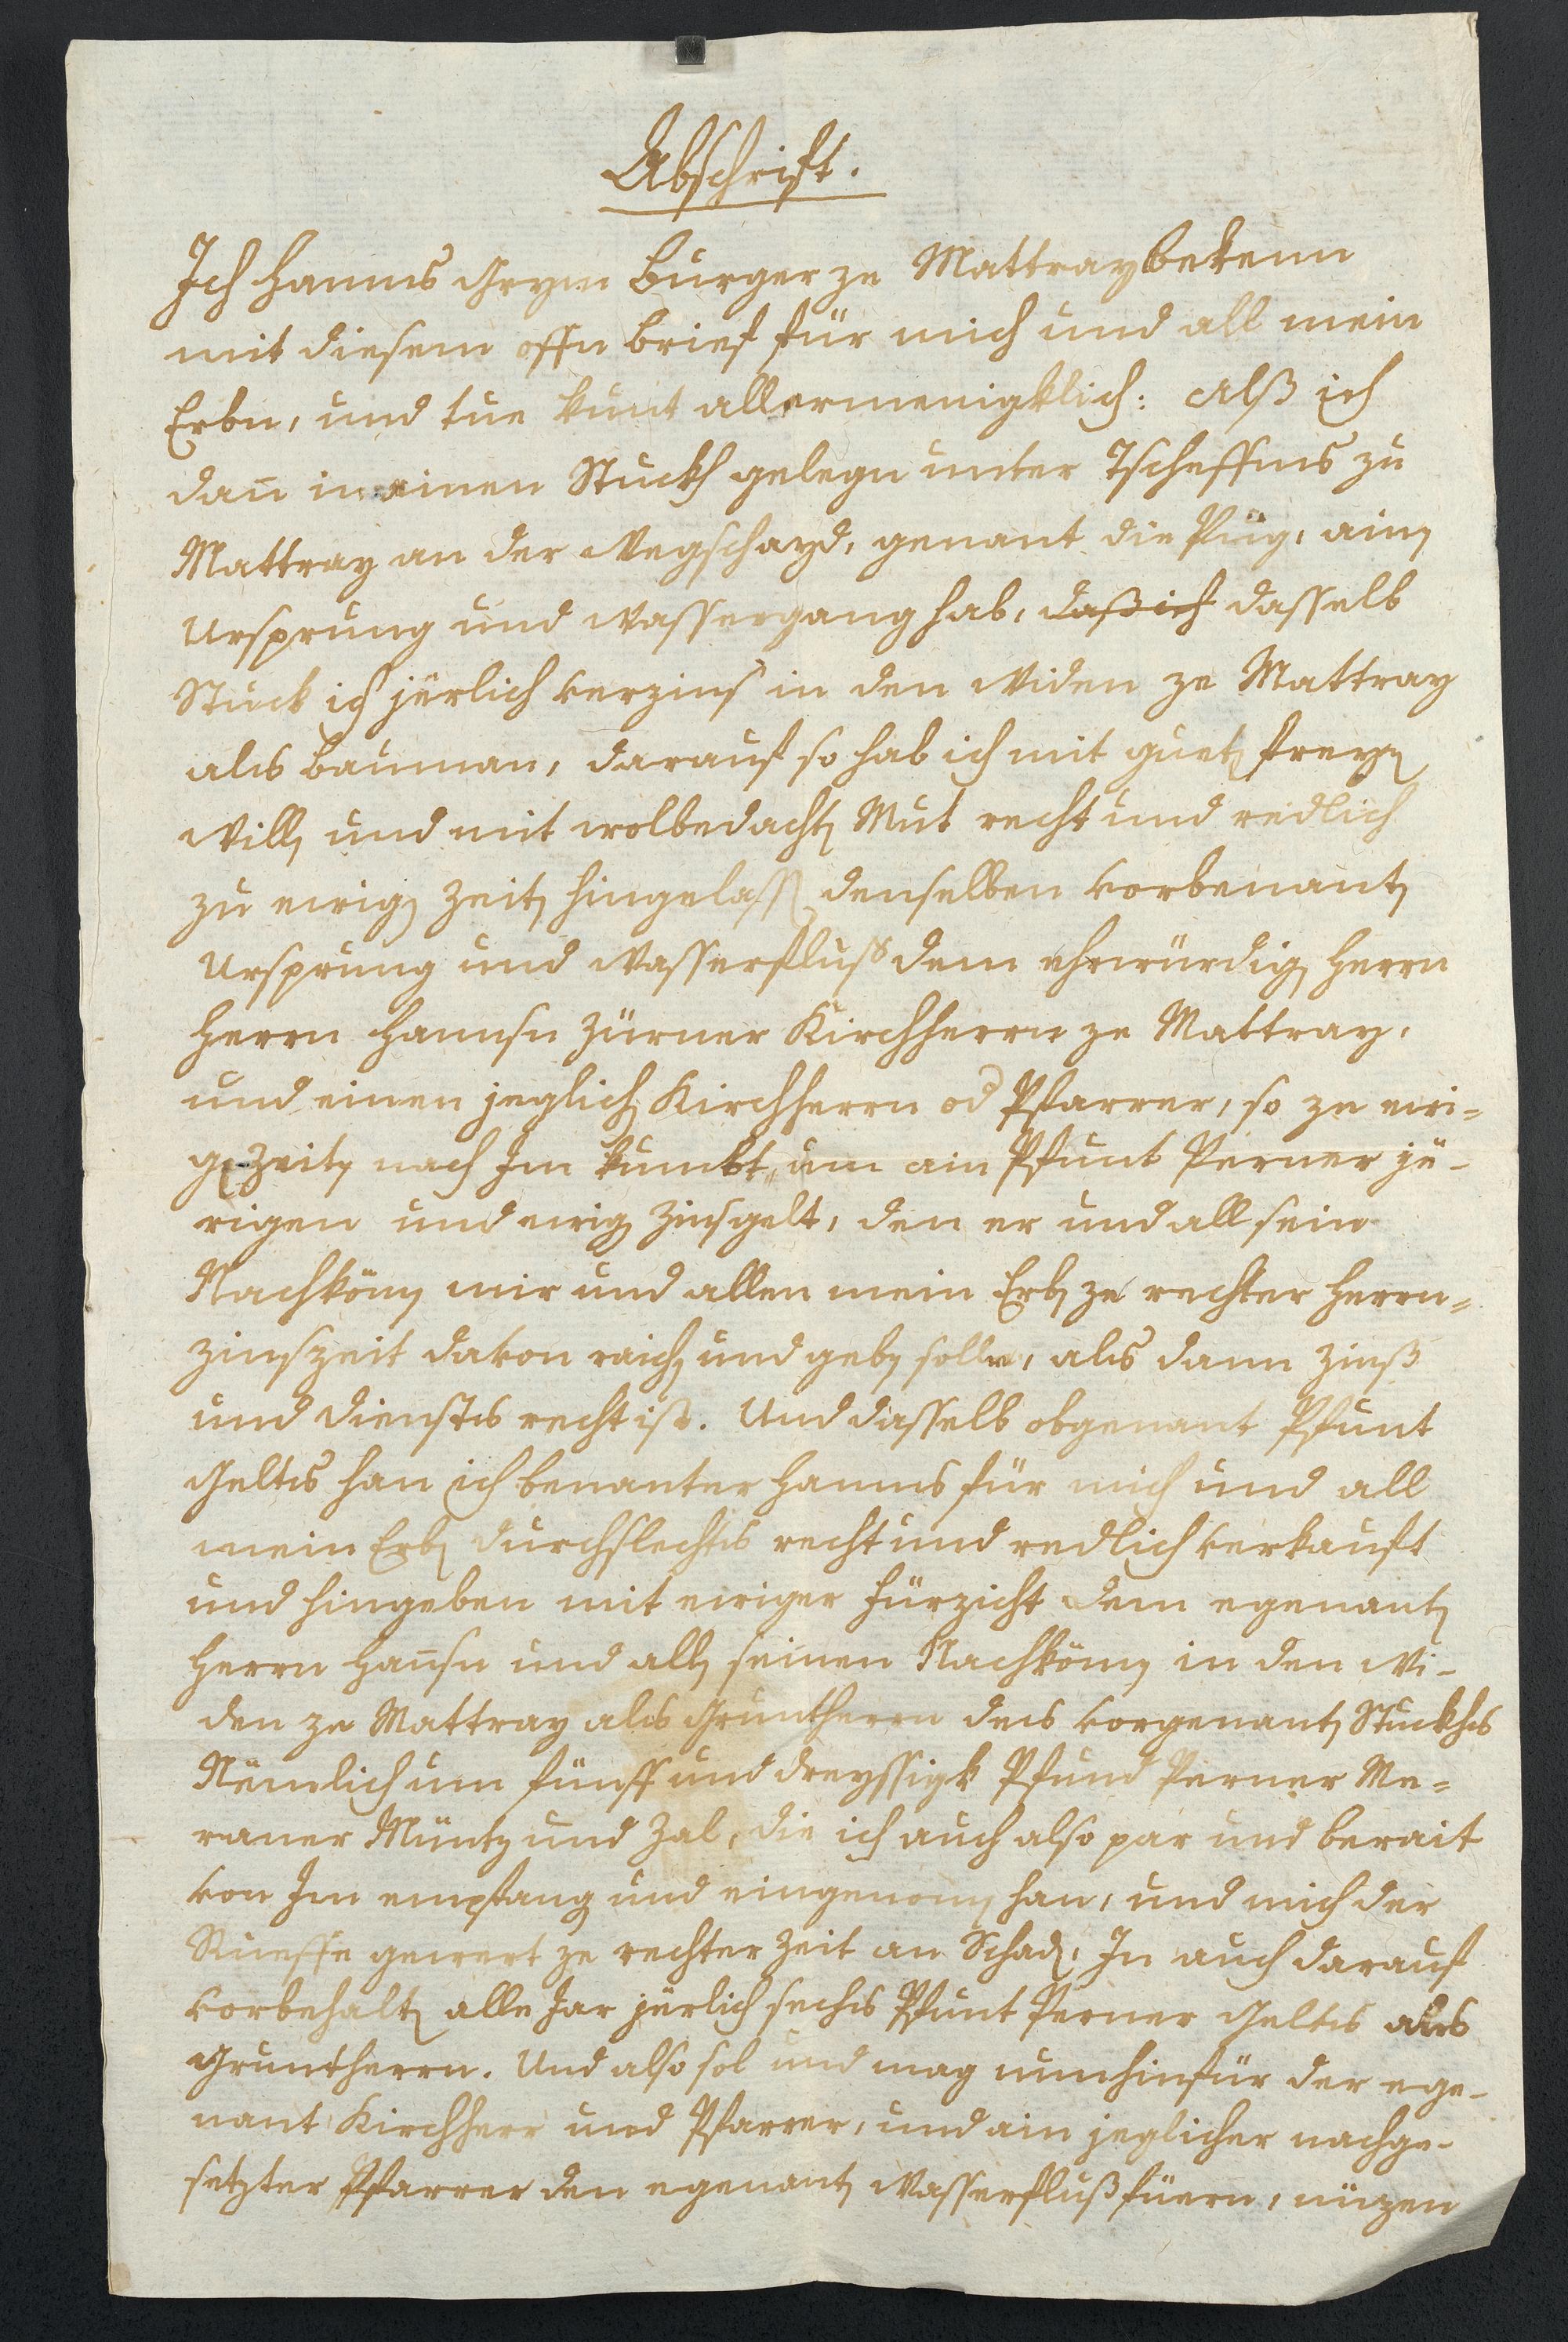 Abschrift.
Ich Hanns Grymm Burger ze Mattray bekenn
mit diesem offn Brief für mich und all mein
Erbn, und tue kunt allermenigklich: Alß ich
dañ in ainen Stuckh gelegn unter Tscheffens zu
Mattray an der Wegschayd, genant die Püg, ainen
Ursprung und Wassergang hab, daß ich dasselb
Stuck ich järlich verzins in den Widen ze Mattray
als Bauman, darauf so hab ich mit gueten freyen
Willen und mit wolbedachten Mut recht und redlich
zu ewigen Zeiten hingelassen denselben vorbenanten
Ursprung und Wasserfluß dem ehrwürdigen Herrn
Herrn Hannsn Zürner Kirchherrn ze Mattray,
und einen jeglichen Kirchherrn od Pfarrer, so ze ewi=
gen Zeiten nach Im kumbt, um ain Pfunt Perner jä-
rigen und ewigen Zinsgelt, den er und all sein
Nachkömen mir und allen mein Erben ze rechter Herrn=
zinszeit davon raichen und geben sollen, als dann Zinß
und Dienstes recht ist. Und dasselb obgenant Pfunt
Geltes han ich benanter Hanns für mich und all
mein Erben durchslechtes recht und redlich verkauft
und hingeben mit ewiger Fürzicht dem egenanten
Herrn Hañsn und allen seinen Nachkömen in den Wi-
den ze Mattray als Gruntherrn des vorgenanten Stuckhes
Nämlich um fünff und dreyssigk Pfund Perner Me=
raner Müntz und Zal, die ich auch also par und berait
von Im empfangen und eingenomen han, und mich der
gewert ze rechter Zeit an Schaden, In auch darauf
vorbehalten alle Jar järlich sechs Pfunt Perner Geltes als
Gruntherrn. Und also sol und mag nunhinfür der ege-
nant Kirchherr und Pfarrer, und ain jeglicher nachge-
setzter Pfarrer den egenanten Wasserfluß füern, nüzen